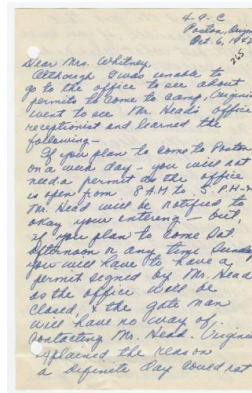 4-9-C
Poston, Ariz
Oct. 6, 1942
Dear Mrs. Whitney,
Although I was unable to
go to the office to see about
permits to come to camp, Virginia
went to see Mr. Head's office
receptionist and learned the
following –
If you plan to come to Poston
on a week day – you will not
need a permit as the office
is open from 8 A.M to 5 P.M –
Mr. Head will be notified to
okay your entering – but,
if you plan to come Sat.
afternoon or any time Sunday
you will have to have a
permit signed by Mr. Head
as the office will be
closed, & the gate man
will have no way of
contacting Mr. Head. Virginia
explained the reason
a definite day could not